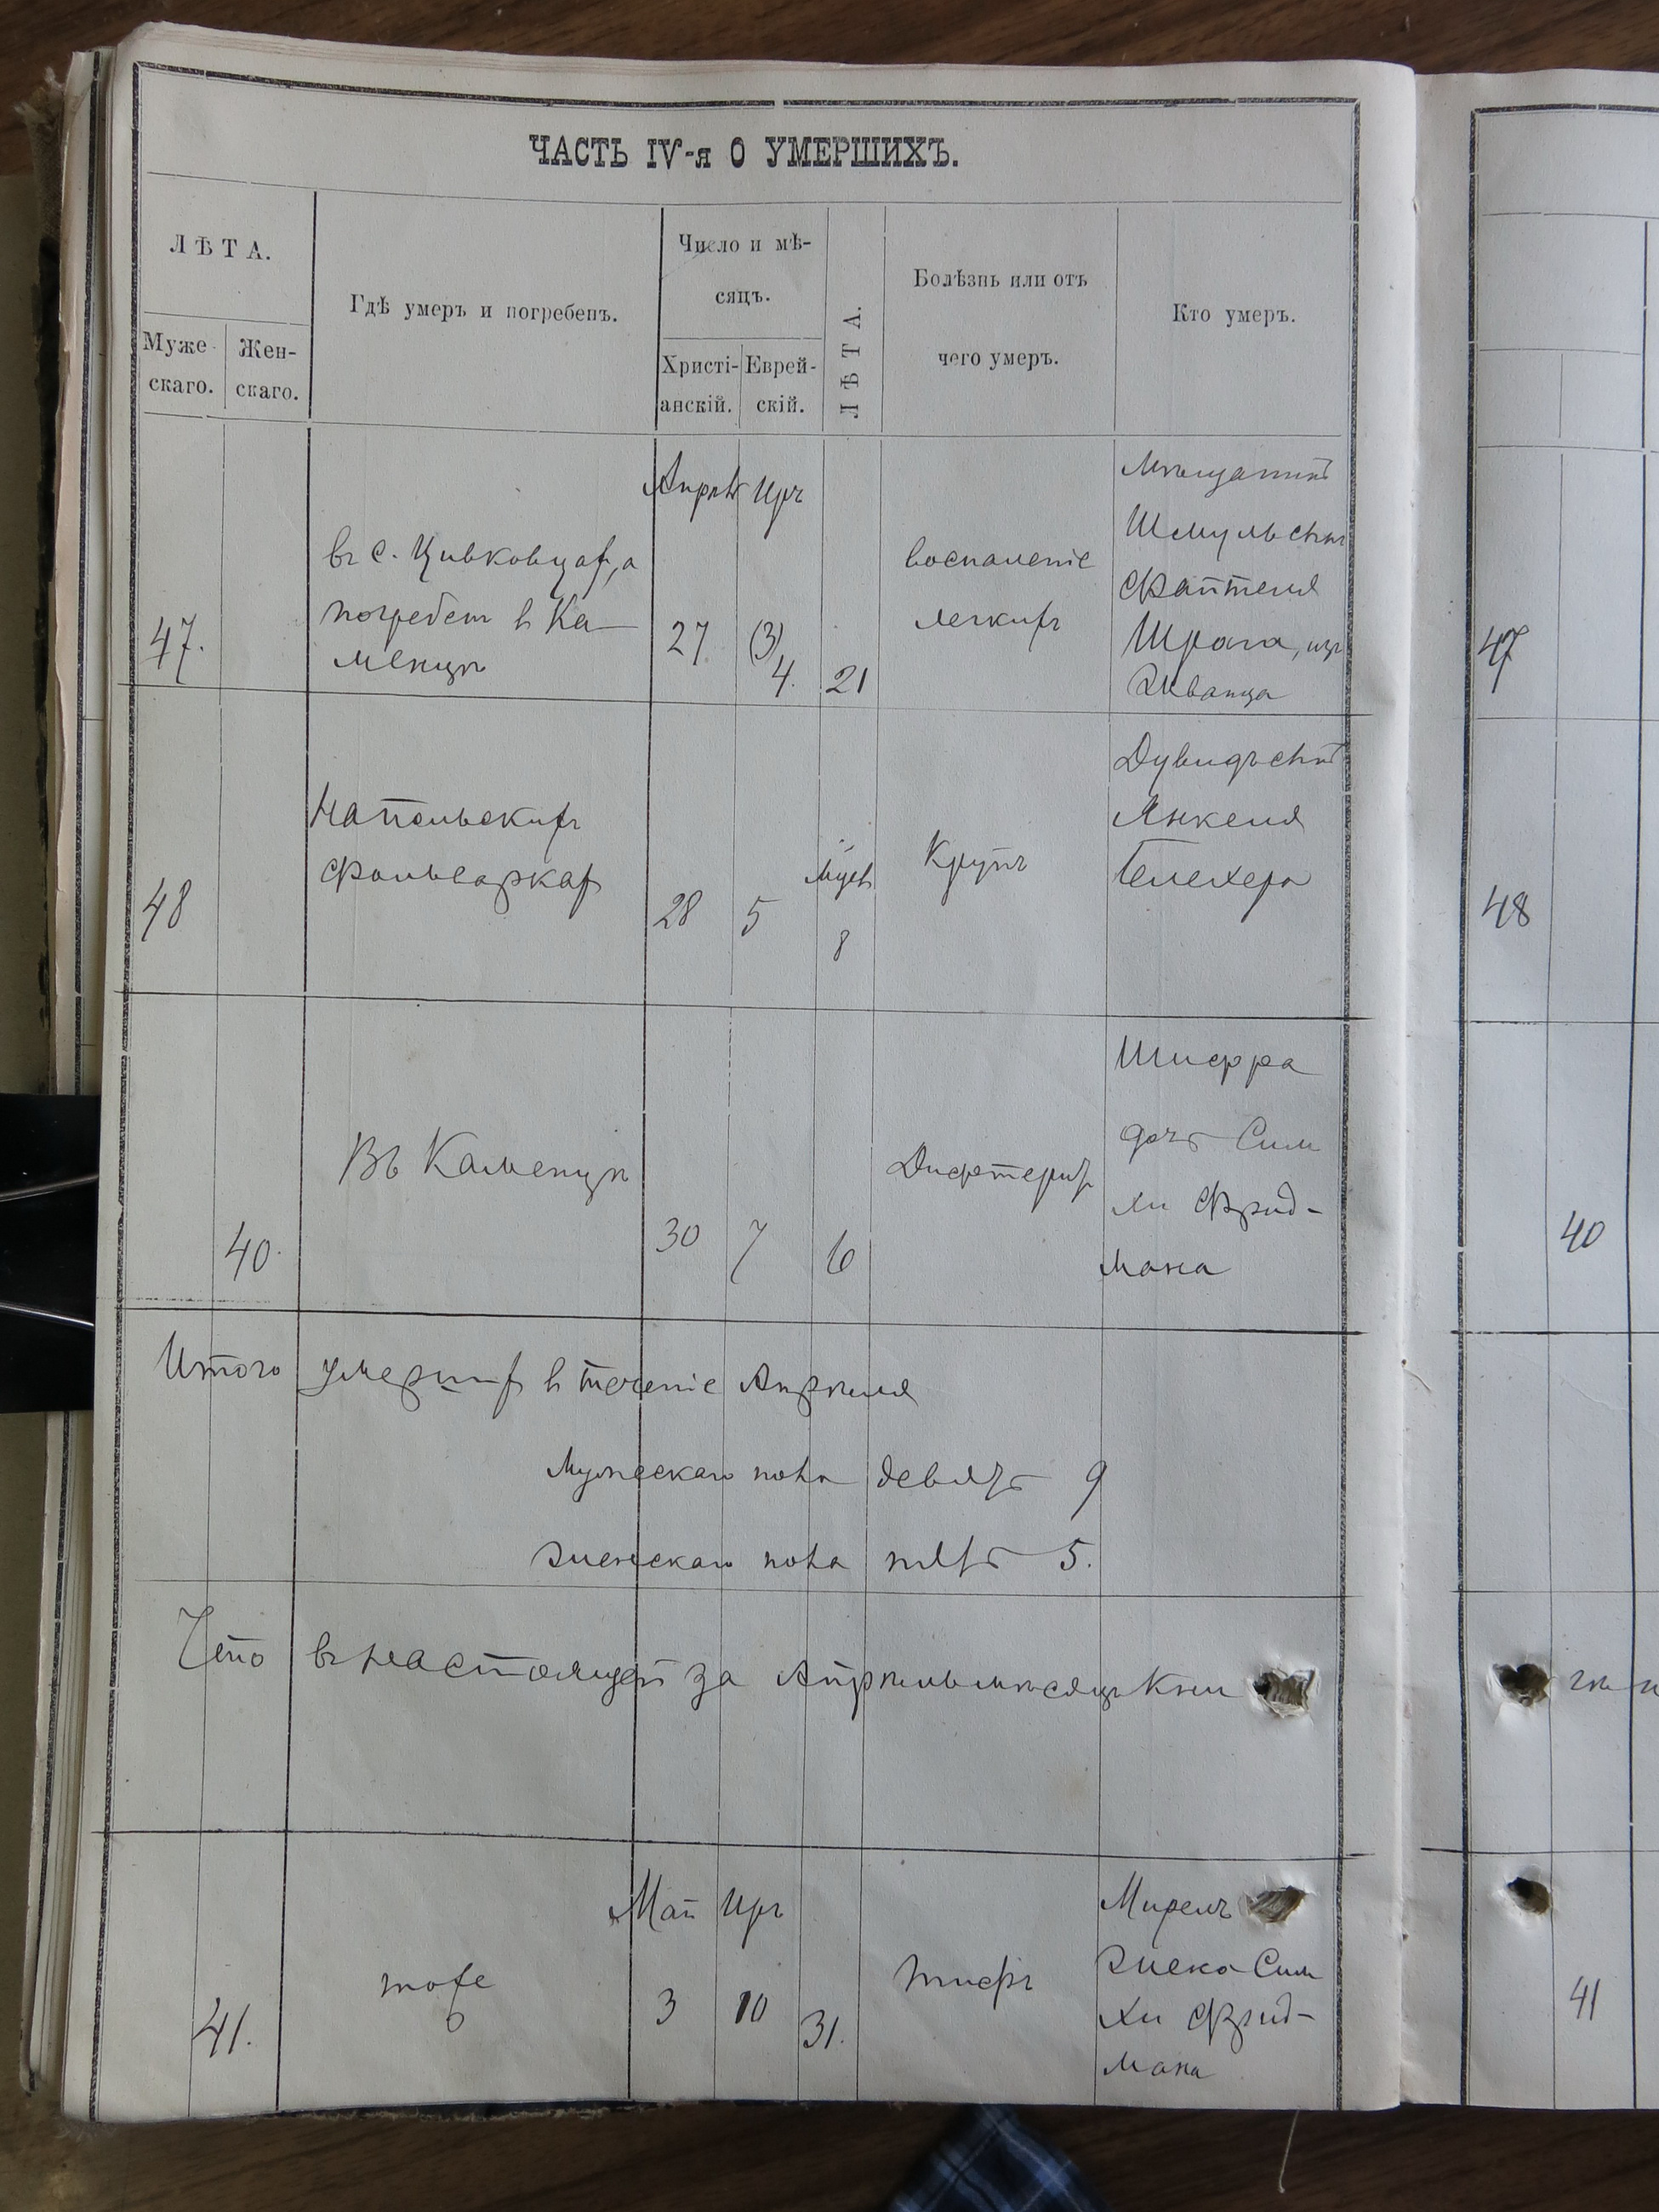 ЧАСТЬ IV-я О УМЕРШИХЪ.
ЛѢТА.
Муже-
скаго.
Жен-
скаго.
Гдѣ умеръ и погребенъ.
Число и мѣ-
сяцъ.
Христі-
анскій.
Еврей-
скій.
ЛѢТА.
Болѣзнь или отъ
чего умеръ.
Кто умеръ.
47.
въ с. Цивковцахъ, а
погребенъ в Ка-
менцѣ
Апрѣл
27
Иръ
(3)
4.
21
воспаленіе
легкихъ
Мѣщанинъ
Шмуль сынъ
Файтеля
Шрага, изъ
Жванца
47
48
На польскихъ
фольваркахъ
28
5
Мцев
8
Крупъ
Дувидъ сынъ
Янкеля
Гелехера
48
40.
Въ Каменцѣ
30
7
6
Дифтеритъ
Шифра
дочь Сим
хи Фрид-
мана
40
Итого умершихъ в теченіе Апрѣля
Мужескаго пола девять 9
Женскаго пола пять 5.
Что въ настоящей за Апрѣль мѣсяцъ кни
гѣ
41.
тоже
Май
3
Иръ
10
31.
тифъ
Мирель
жена Сим
хи Фрид-
мана
41